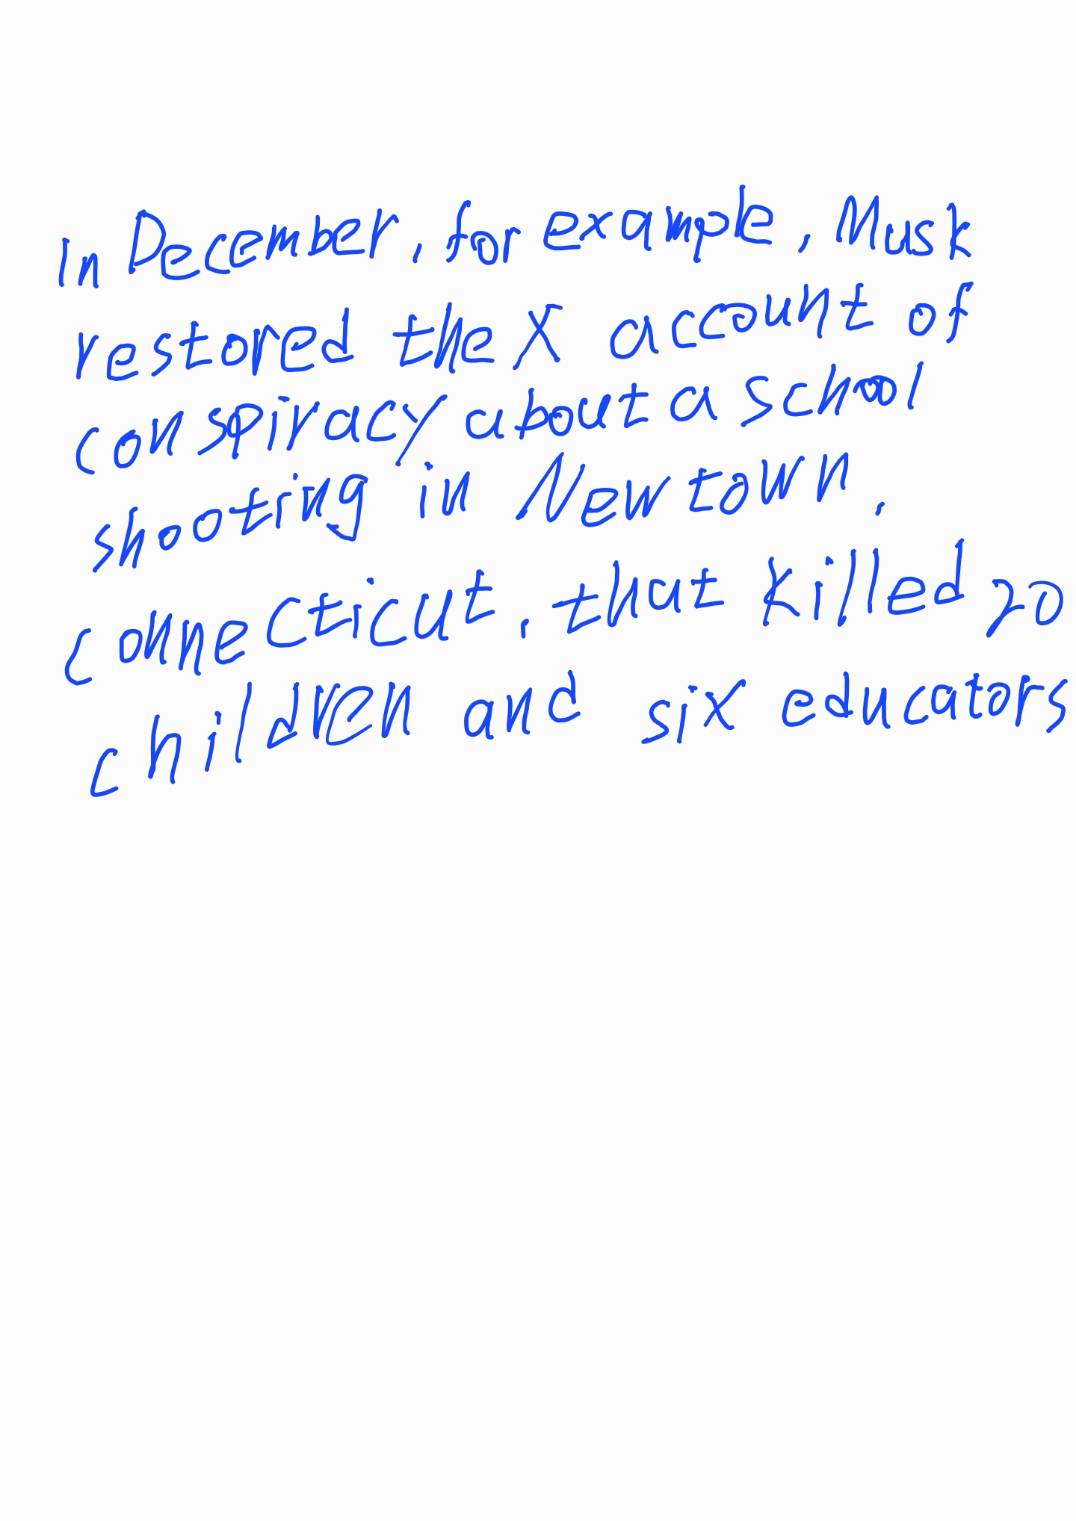 In December, for example, Musk
restored the X account of
conspiracy about a school
shooting in Newtown,
connecticut, that killed 20
children and six educators